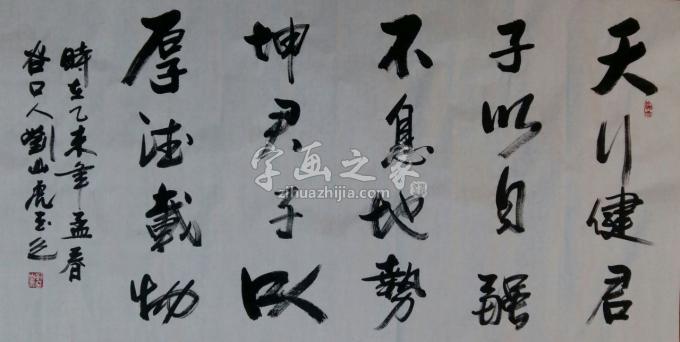 天行健君
子以自强
不息地势
坤君子以
厚德载物
時在乙未年孟春
谷口人劉山虎書
字画之家
zihuazhijia.com